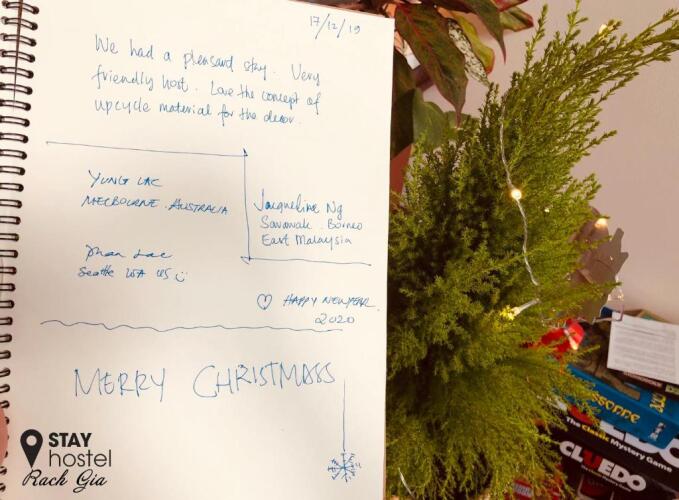 17/12/19
We had a pleasard stay. Very
friendly host. Love the concept of
upcycle material for the decor.
YUNG LAC
MELBOURNE. AUSTRALIA
Jacqueline Ng
Sarawak. Borneo
East Malaysia
Phan Lac
Seattle WA US
HAPPY NEW YEAR
2020
MERRY CHRISTMASS
STAY
hostel
Rach Gia
The Classic Mystery Game
CLUEDO